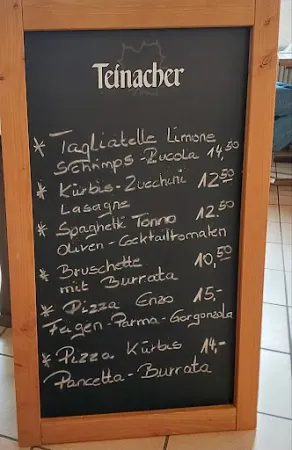 Teinacher
* Tagliatelle Limone
Schrimps-Rucola 14,50
* Kürbis-Zucchini 12.50
Lasagne
* Spaghetti Tonno 12.50
Oliven-Cocktailtomaten
* Bruschette 10,50
mit Burrata
* Pizza Enzo 15.-
Feigen-Parma-Gorgonzola
* Pizza Kürbis 14,-
Pancetta-Burrata